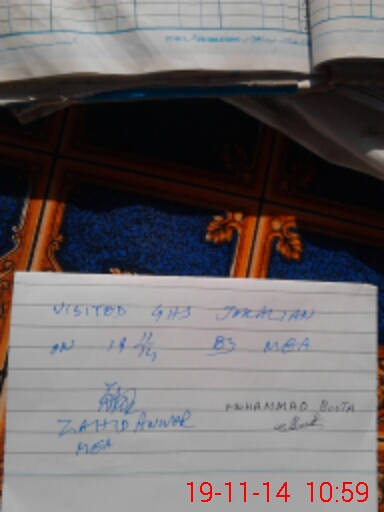 VISITED GHS JAKALIAN
ON 19 11/14 BY MEA
ZAHID ANWAR
MEA
MUHAMMAD BOOTA
19-11-14 10:59